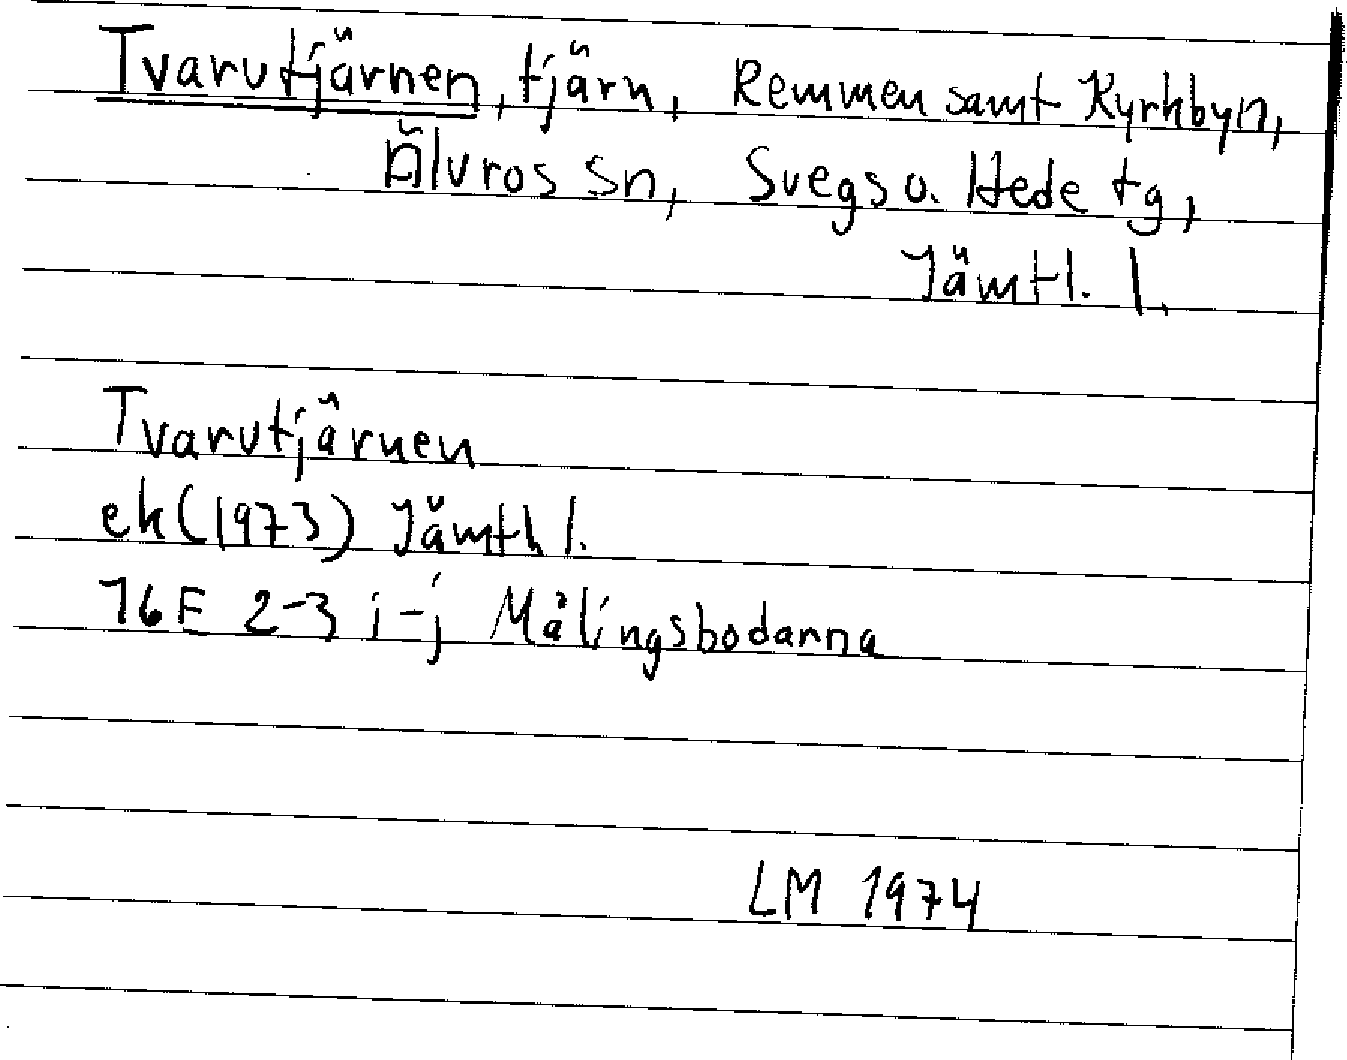 Tvarutjärnen, tjärn, Remmen samt Kyrkbyn,
Älvros sn, Svegs o. Hede tg,
Jämtl. l.
Tvarutjärnen
ek (1973) Jämth l.
16E 2-3 i-j Målingsbodarna
LM 1974